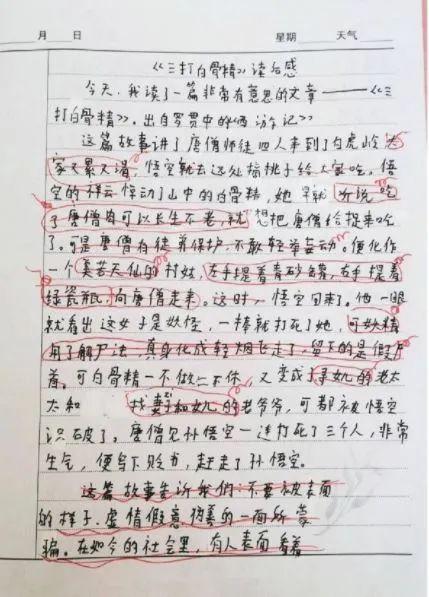 月 日 星期 天气
《三打白骨精》读后感
今天,我读了一篇非常有意思的文章——《三
打白骨精》,出自罗贯中的《西游记》
这篇故事讲了唐僧师徒四人来到了白虎岭,大
家又累又渴,悟空就去远处摘桃子给大家吃。悟
空的祥云惊动了山中的白骨精,她早就听说吃
了唐僧肉可以长生不老,就想把唐僧给捉来吃
了。可是唐僧有徒弟保护,不敢轻举妄动。便化作
一个美若天仙的村姑,左手提着青砂罐,右手提着
绿瓷瓶,向唐僧走来。这时,悟空回来了。他一眼
就看出这女子是妖怪,一棒就打死了她,可妖精
用了解尸法,真身化成轻烟飞走了,留下的是假尸
首。可白骨精一不做二不休,又变成了寻女儿的老太
太和 找妻子和女儿的老爷爷,可都被悟空
识破了。唐僧见孙悟空一连打死了三个人,非常
生气,便写下贬书,赶走了孙悟空。
这篇故事告诉我们:不要被表面
的样子、虚情假意伪善的一面所蒙
骗。在如今的社会里,有人表面看着